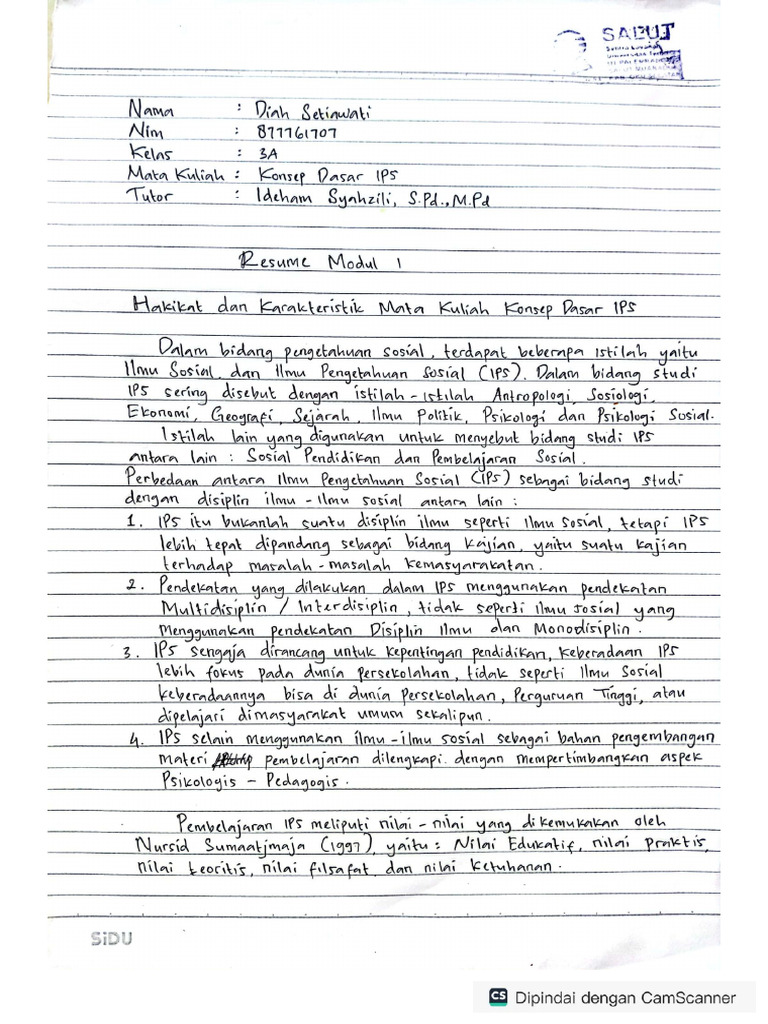 SALUT
Nama : Diah Setiawati
Nim : 877761707
Kelas : 3A
Mata Kuliah : Konsep Dasar IPS
Tutor : Ideham Syahzili, S.Pd., M.Pd
Resume Modul 1
Hakikat dan Karakteristik Mata Kuliah Konsep Dasar IPS
Dalam bidang pengetahuan sosial, terdapat beberapa istilah yaitu
Ilmu Sosial, dan Ilmu Pengetahuan Sosial (IPS). Dalam bidang studi
IPS sering disebut dengan istilah-istilah Antropologi, Sosiologi,
Ekonomi, Geografi, Sejarah, Ilmu Politik, Psikologi dan Psikologi Sosial.
Istilah lain yang digunakan untuk menyebut bidang studi IPS
antara lain : Sosial Pendidikan dan Pembelajaran Sosial.
Perbedaan antara Ilmu Pengetahuan Sosial (IPS) sebagai bidang studi
dengan disiplin ilmu-ilmu sosial antara lain :
1. IPS itu bukanlah suatu disiplin ilmu seperti Ilmu Sosial, tetapi IPS
lebih tepat dipandang sebagai bidang kajian, yaitu suatu kajian
terhadap masalah-masalah kemasyarakatan.
2. Pendekatan yang dilakukan dalam IPS menggunakan pendekatan
Multidisiplin / Interdisiplin, tidak seperti ilmu sosial yang
menggunakan pendekatan Disiplin Ilmu dan Monodisiplin.
3. IPS sengaja dirancang untuk kepentingan pendidikan, keberadaan IPS
lebih fokus pada dunia persekolahan, tidak seperti Ilmu Sosial
keberadaannya bisa di dunia Persekolahan, Perguruan Tinggi, atau
dipelajari dimasyarakat umum sekalipun.
4. IPS selain menggunakan ilmu-ilmu sosial sebagai bahan pengembangan
materi pembelajaran dilengkapi. dengan mempertimbangkan aspek
Psikologis - Pedagogis.
Pembelajaran IPS meliputi nilai-nilai yang dikemukakan oleh
Nursid Sumaatjmaja (1997), yaitu : Nilai Edukatif, nilai praktis,
nilai teoritis, nilai filsafat, dan nilai ketuhanan.
SiDU
CS Dipindai dengan CamScanner